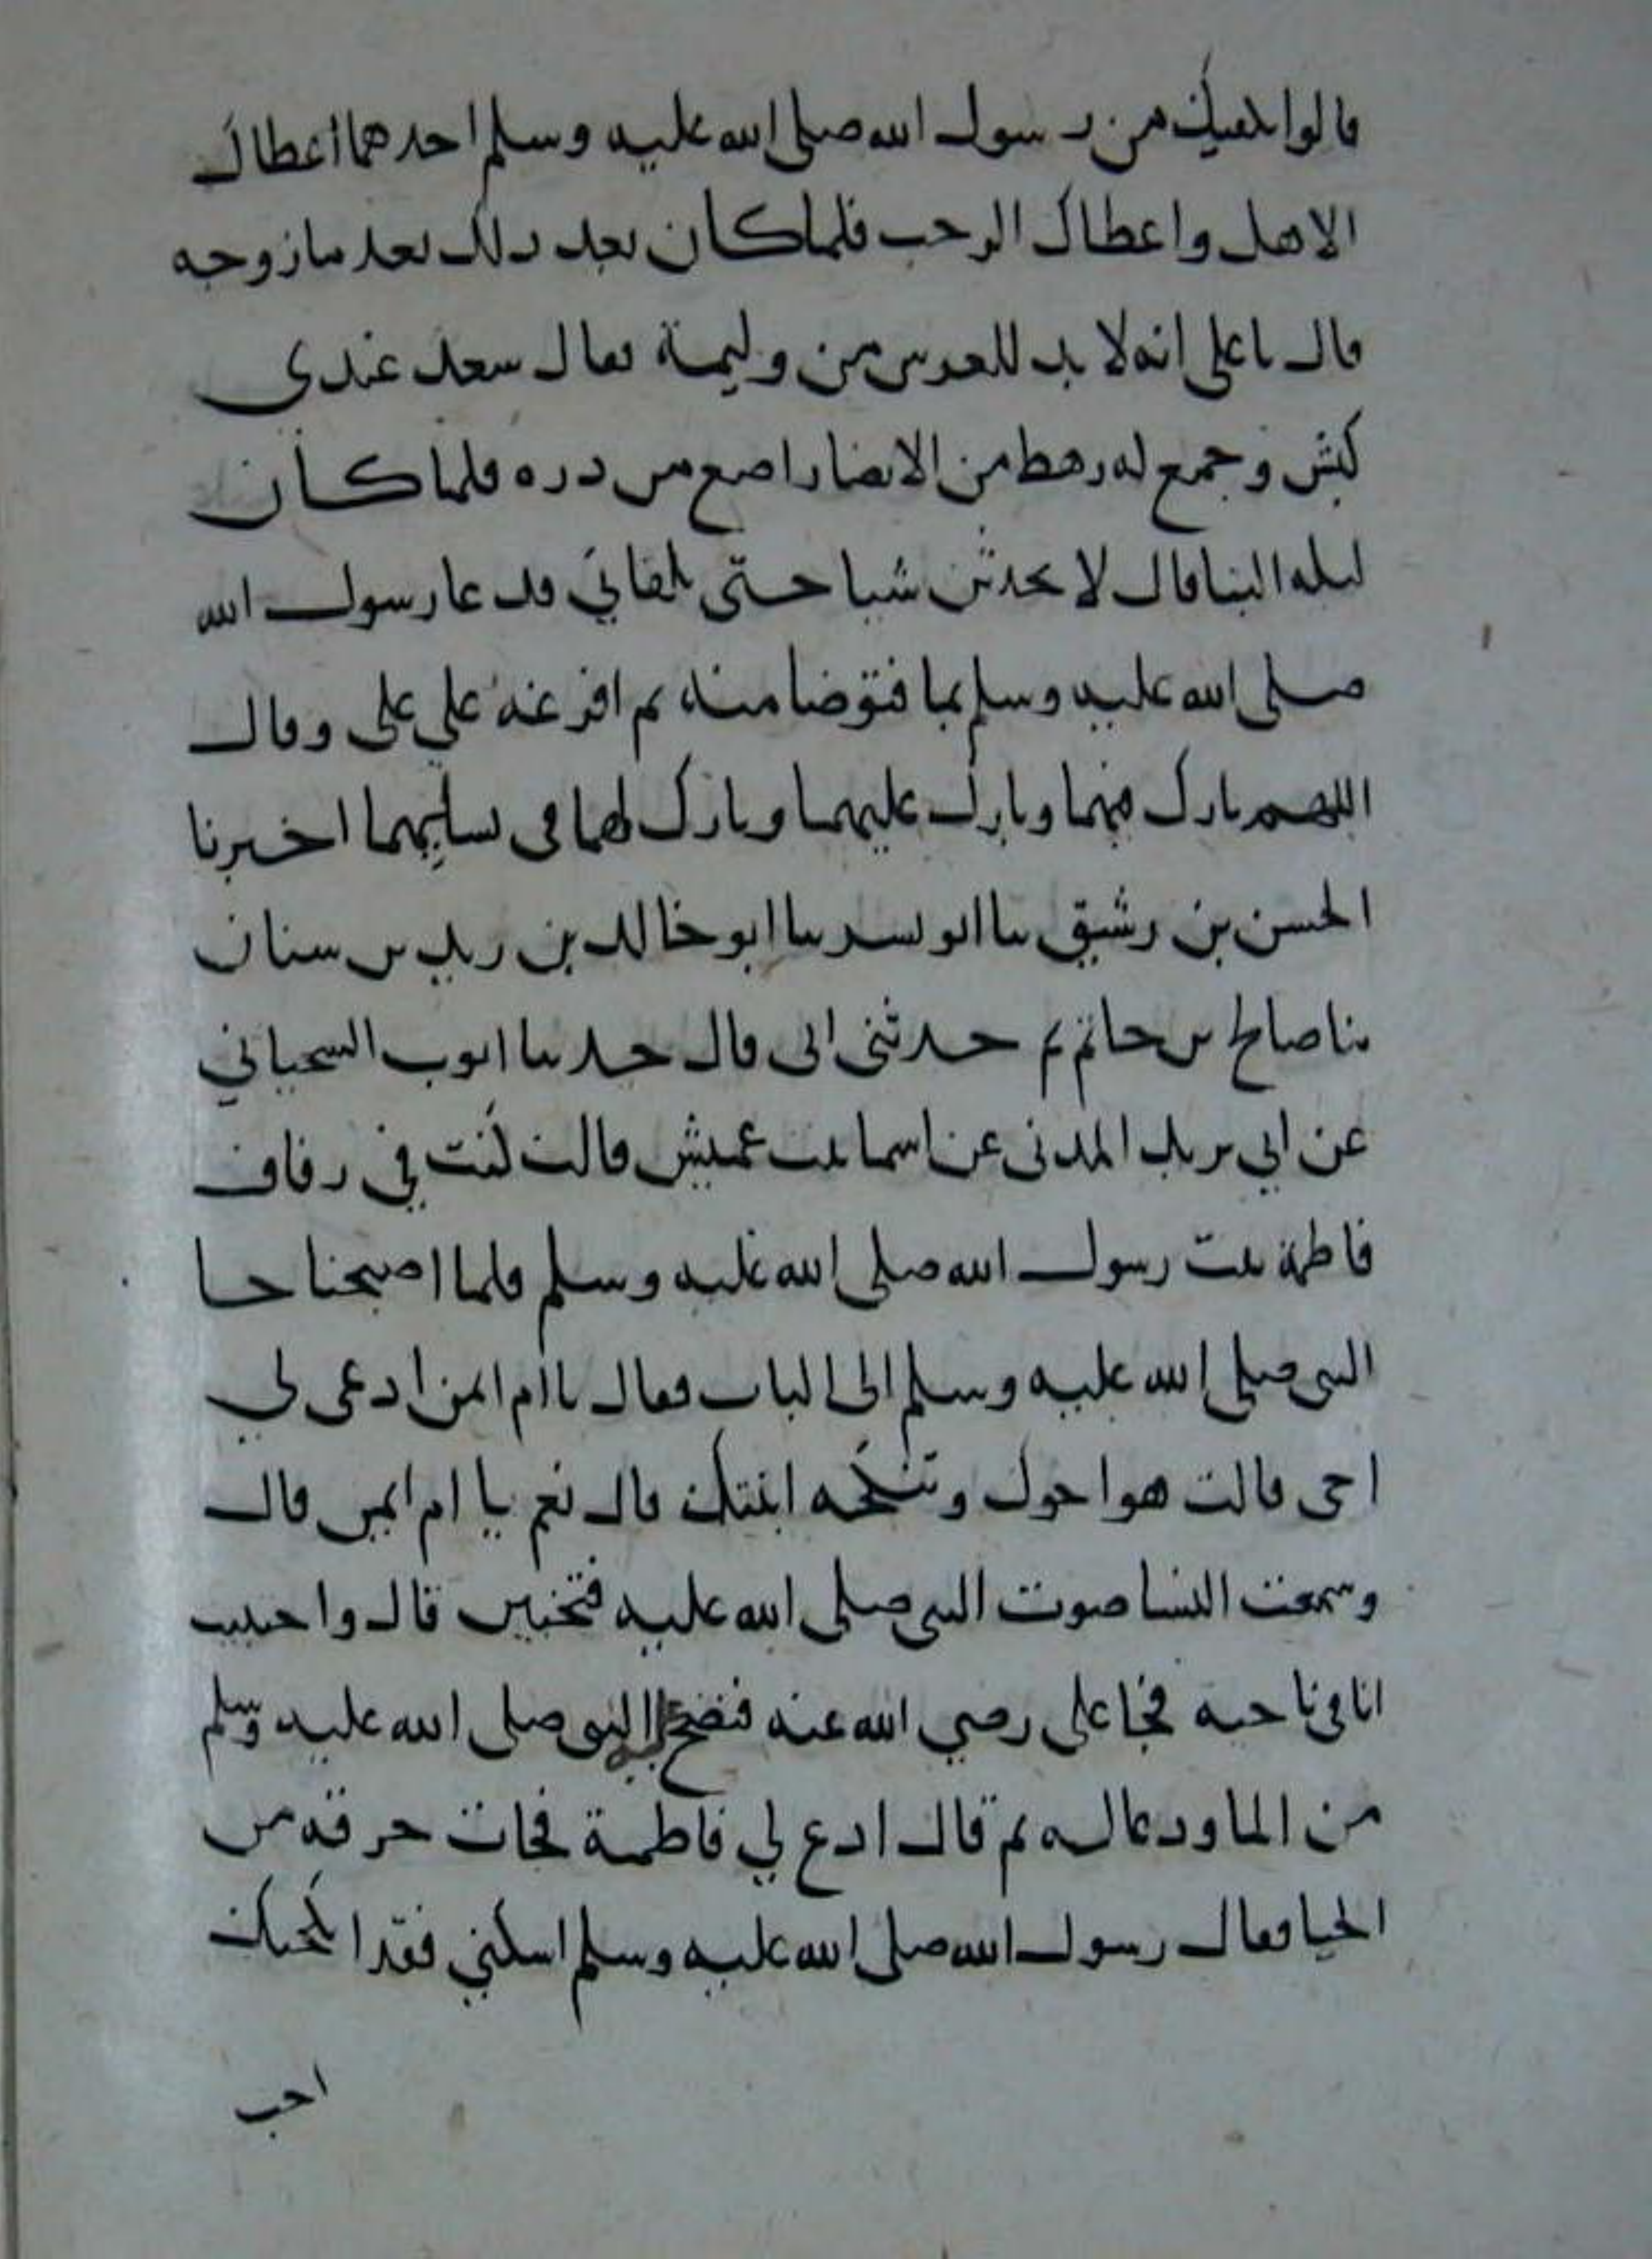 قالوا يكفيك من رسول الله صلى الله عليه وسلم احدهما اعطاك
الاهل واعطاك الرحب فلما كان بعد ذلك بعد ما زوجه
قال يا على انه لا بد للعرس من وليمة فقال سعد عندى
كبش وجمع له رهط من الانصار اصع من دره فلما كان
ليله البنا قال لا تحدثن شيا حتى تلقاني فدعا رسول الله
صلى الله عليه وسلم بما فتوضا منه ثم افرغه علي على وقال
اللهم بارك فيهما وبارك عليهما وبارك لهما فى نسليهما اخبرنا
الحسن بن رشيق ثنا ابو بشر ثنا ابو خالد بن يزيد بن سنان
ثنا صالح بن حاتم ثم حدثنى ابى قال حدثنا ايوب السحياني
عن ابي يزيد المدنى عن اسما بنت عميش قالت كنت في زفاف
فاطمة بنت رسول الله صلى الله عليه وسلم فلما اصبحنا جا
النبى صلى الله عليه وسلم الى الباب فقال يا ام ايمن ادعى لي
اخى قالت هو اخوك وتنكحه ابنتك قال نعم يا ام ايمن قال
وسمعت النسا صوت النبى صلى الله عليه فتخبين قال واختبيت
انا فى ناحيه فجا على رضي الله عنه فنضح النبى صلى الله عليه وسلم
من الما ودعا له ثم قال ادع لي فاطمة فجات خرقه من
الحيا فقال رسول الله صلى الله عليه وسلم اسكني فقد انكحتك
احب